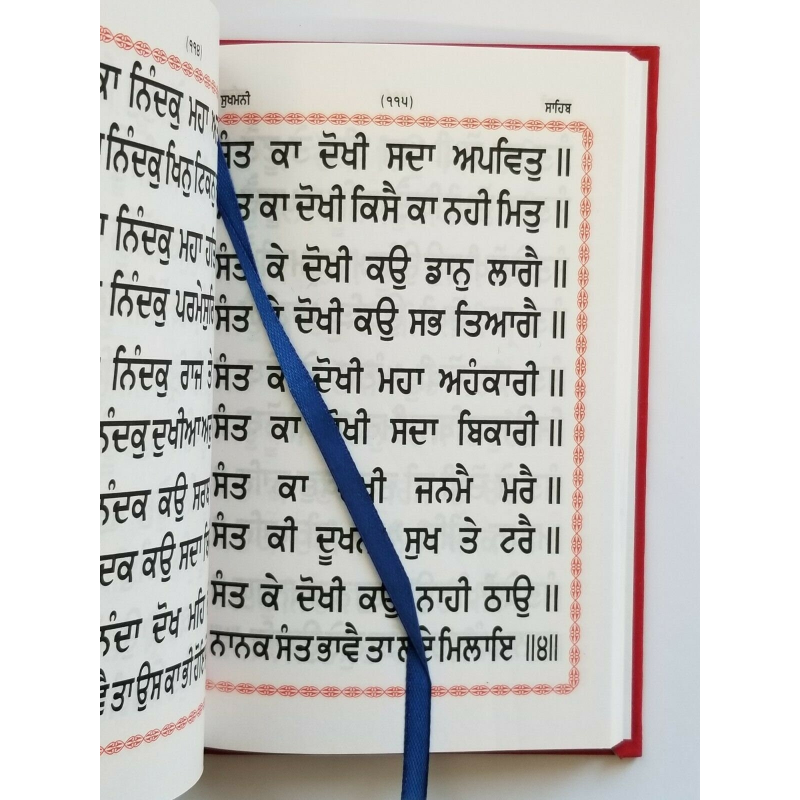 (੧੧੪)
ਕਾ ਨਿੰਦਕੁ ਮਹਾ
ਨਿੰਦਕੁ ਖਿਨੁ
ਨਿੰਦਕੁ ਮਹਾ
ਨਿੰਦਕੁ
ਨਿੰਦਕੁ ਰਾਜ ਤੇ
ਦੁਖੀਆ
ਕਉ
ਕਉ ਸਦਾ
ਦੋਖ ਮਹਿ
ਤਾ ਉਸ ਕਾ ਭੀ
ਸੁਖਮਨੀ (੧੧੫) ਸਾਹਿਬ
ਸੰਤ ਕਾ ਦੋਖੀ ਸਦਾ ਅਪਵਿਤੁ ॥
ਕਾ ਦੋਖੀ ਕਿਸੈ ਕਾ ਨਹੀ ਮਿਤੁ ॥
ਸੰਤ ਕੇ ਦੋਖੀ ਕਉ ਡਾਨੁ ਲਾਗੈ ॥
ਸੰਤ ਦੋਖੀ ਕਉ ਸਭ ਤਿਆਗੈ ॥
ਸੰਤ ਕਾ ਦੋਖੀ ਮਹਾ ਅਹੰਕਾਰੀ ॥
ਸੰਤ ਕਾ ਦੋਖੀ ਸਦਾ ਬਿਕਾਰੀ ॥
ਸੰਤ ਕਾ ਜਨਮੈ ਮਰੈ ॥
ਸੰਤ ਕੀ ਦੂਖਨਾ ਸੁਖ ਤੇ ਟਰੈ ॥
ਸੰਤ ਕੇ ਦੋਖੀ ਕਉ ਨਾਹੀ ਠਾਉ ॥
ਨਾਨਕ ਸੰਤ ਭਾਵੈ ਤਾ ਲਏ ਮਿਲਾਇ ॥੪॥